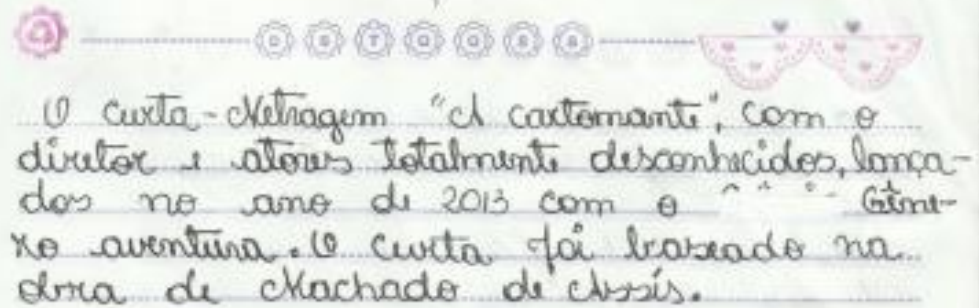 D S T Q Q S S
O Curta-Metragem "A cartomante", com o
diretor e atores totalmente desconhecidos, lança-
dos no ano de 2013 com o Gêne-
ro aventura. O Curta foi baseado na
obra de Machado de Assis.